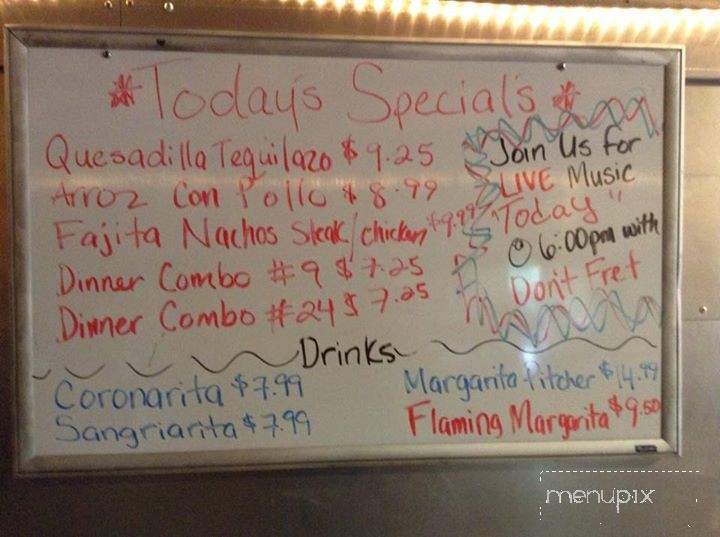 *Today's Special's*
Quesadilla Tequilazo $9.25
Arroz Con Pollo $8.99
Fajita Nachos Steak/chicken $9.99
Dinner Combo #9 $7.25
Dinner Combo #24 $7.25
Join Us for
LIVE Music
"Today"
@ 6:00pm with
Don't Fret
Drinks
Coronarita $7.99
Sangriarita $7.99
Margarita Pitcher $14.99
Flaming Margarita $9.50
menupix